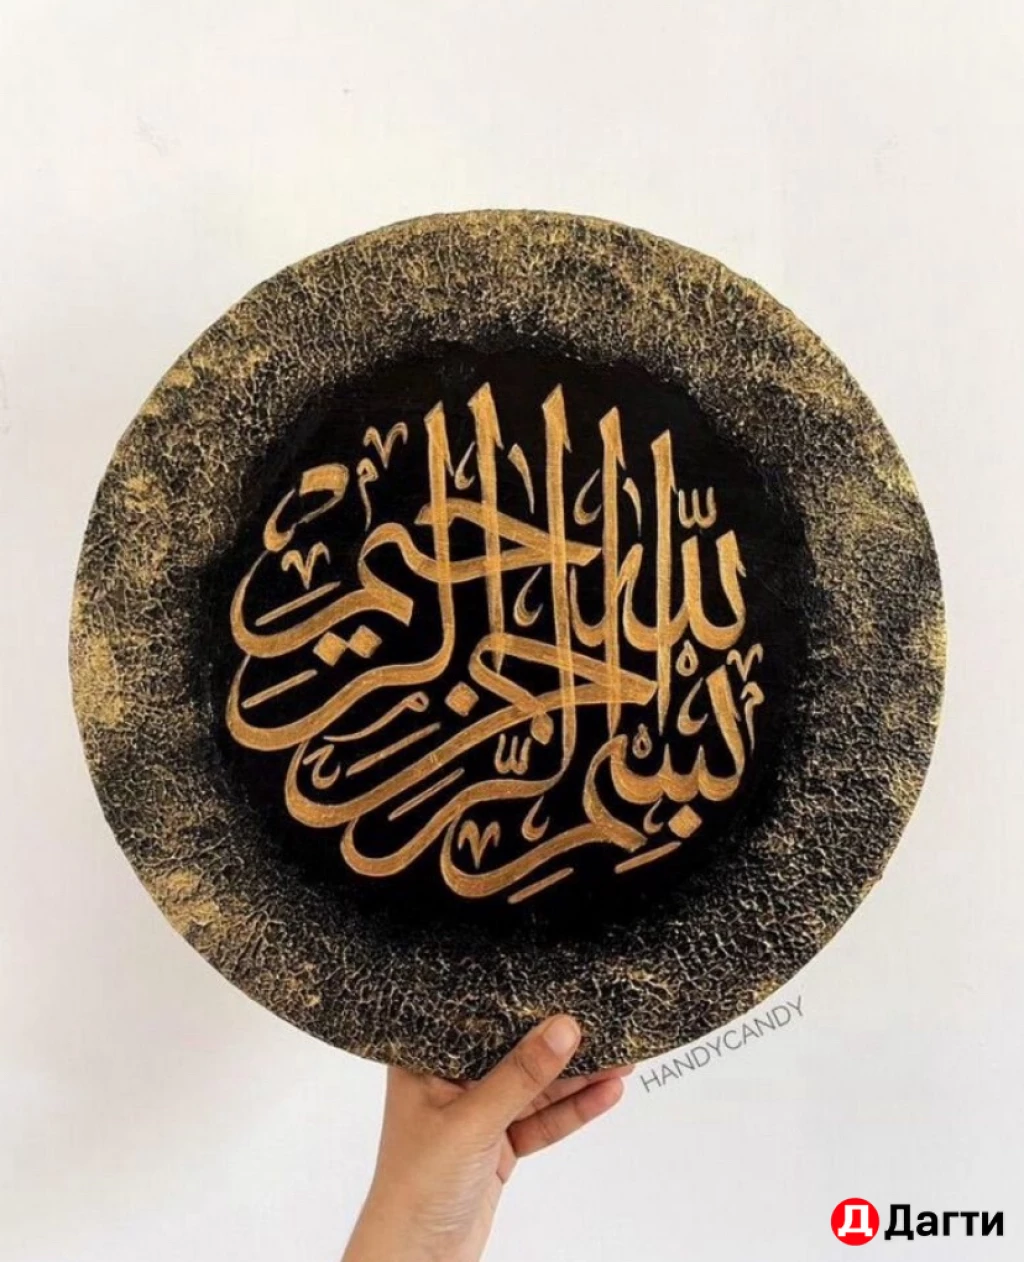 بسم الله الرحمن الرحيم
HANDYCANDY
Дагти